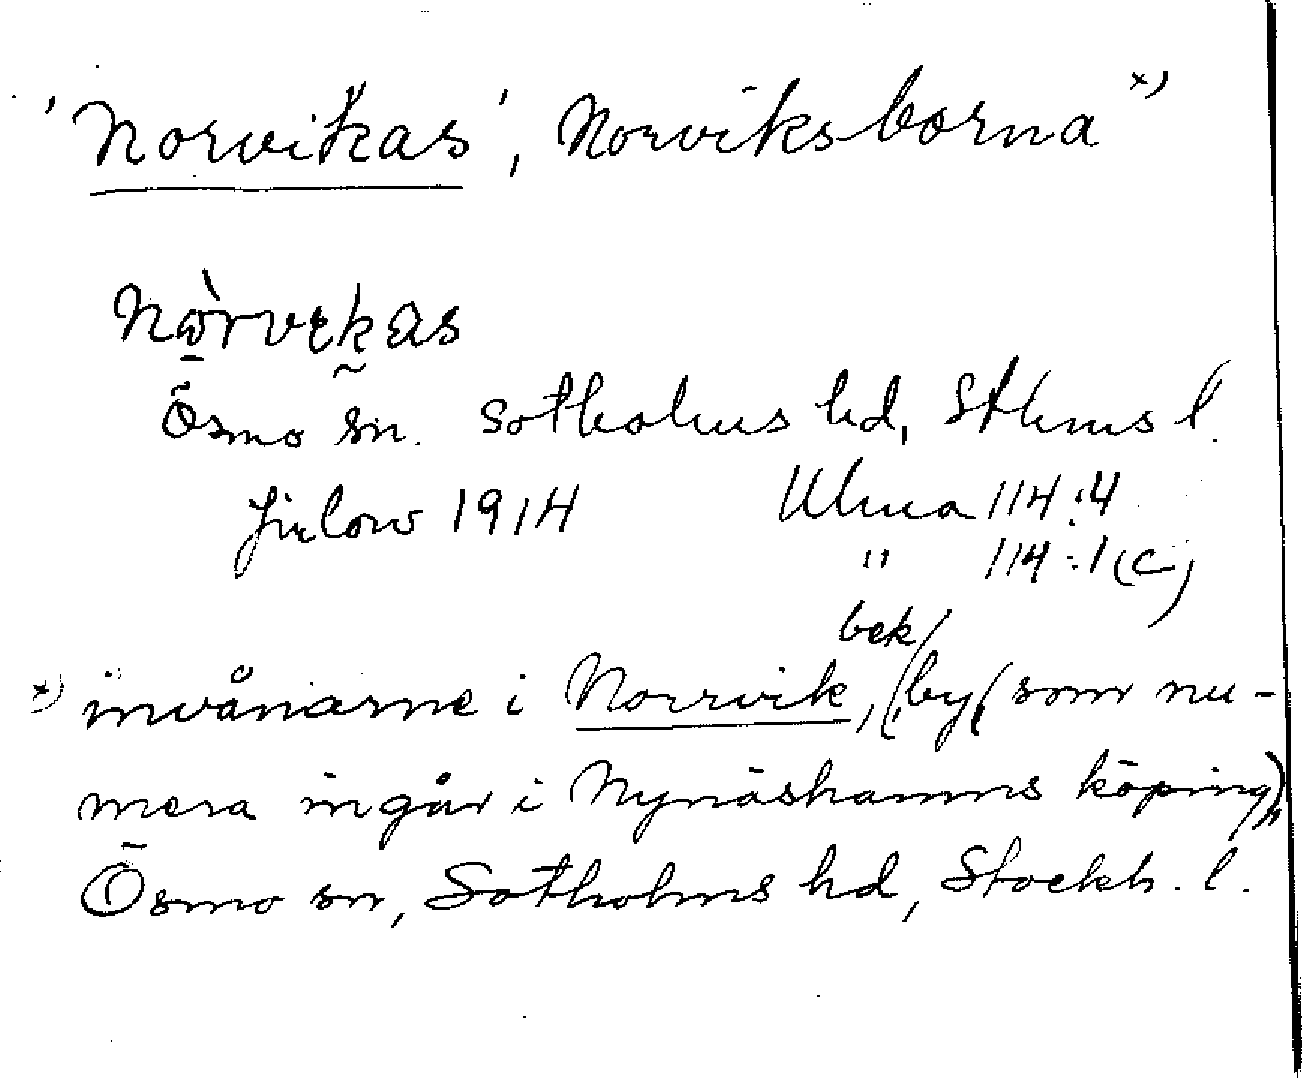 'Norvikas', Norviksborna x)
Nòrvekas
Ösmo sn. Sotholms hd, Sthms l.
Julow 1914 Ulma 114:4
" 114:1(c)
bek
x) invånarne i Norrvik, (by (som nu-
mera ingår i Nynäshamns köping),
Ösmo sn, Sotholms hd, Stockh. l.